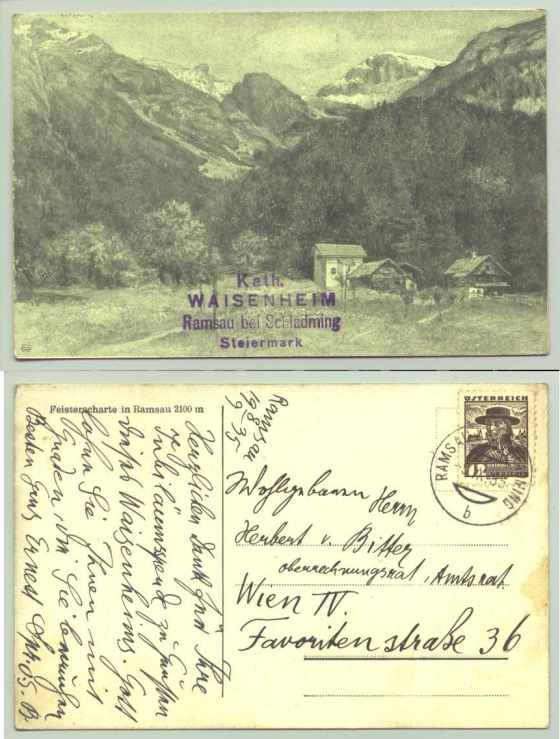 Kath.
WAISENHEIM
Ramsau bei Schladming
Steiermark
Feisterscharte in Ramsau 2100 m
Ramsau
19 8 35
Herzlichen Dank für Ihre
Jubiläumsspende zu Gunsten
Waisenheims. Gott
lohne Sie Ihnen mit
Gnaden
Besten Gruß Ernest
ÖSTERREICH
12
RAMSAU
b
Wohlgeboren Herrn
Herbert v. Bitter
oberrechnungsrat, Amtsrat
Wien IV.
Favoriten straße 36